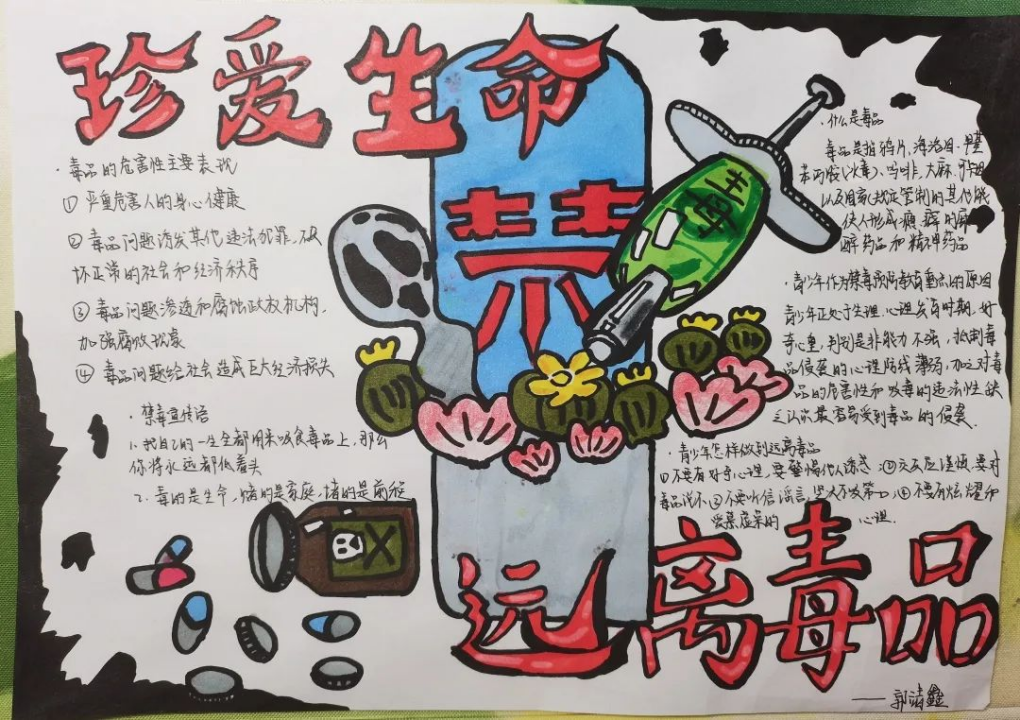 珍爱生命
禁
毒
·毒品的危害性主要表现
① 严重危害人的身心健康
② 毒品问题诱发其他违法犯罪,破
坏正常的社会和经济秩序
③ 毒品问题渗透和腐蚀政权机构,
加强腐败现象
④ 毒品问题给社会造成巨大经济损失
·禁毒宣传语
1、我自己的一生全都用来吸食毒品上,那么
你将永远都低着头
2、毒的是生命,赌的是家庭,堵的是前程
·什么是毒品
毒品是指鸦片、海洛因、
(冰毒)、吗啡、大麻、可卡因
以及国家规定管制的其他能
使人形成瘾癖的麻
醉药品和精神药品
·青少年作为禁毒预防教育重点的原因
青少年正处于生理、心理发育时期,好
奇心重,判别是非能力不强,抵制毒
品侵袭的心理防线薄弱,加之对毒
品的危害性和吸毒的违法性缺
乏认识最容易受到毒品的侵袭.
·青少年怎样做到远离毒品
①不要有好奇心理,要警惕他人诱惑;②交友应谨慎,要对
毒品说不③不要听信谣言,坚决不吸第一口,④不要有炫耀和
爱慕虚荣的 心理.
远离毒品
—— 郭靖鑫